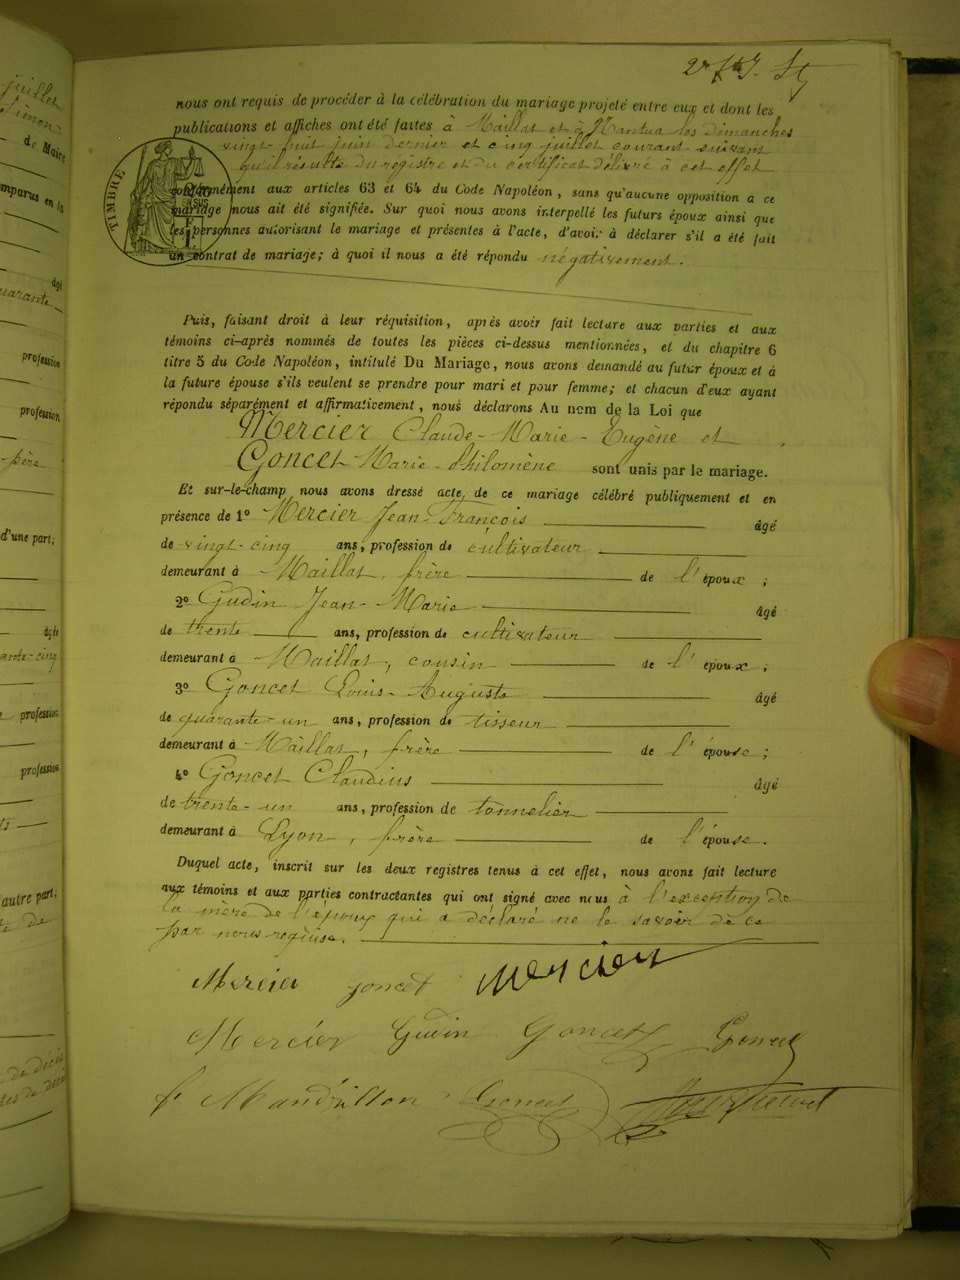 nous ont requis de procéder à la célébration du mariage projeté entre eux et dont les
publications et affiches ont été faites à Maillat et à Nantua les dimanches
vingt-huit juin dernier et cinq juillet courant suivant
qu'il résulte du registre et du certificat délivré à cet effet
TIMBRE
conformément aux articles 63 et 64 du Code Napoléon, sans qu'aucune opposition à ce
mariage nous ait été signifiée. Sur quoi nous avons interpellé les futurs époux ainsi que
les personnes autorisant le mariage et présentes à l'acte, d'avoir à déclarer s'il a été fait
un contrat de mariage; à quoi il nous a été répondu négativement.
Puis, faisant droit à leur réquisition, après avoir fait lecture aux parties et aux
témoins ci-après nommés de toutes les pièces ci-dessus mentionnées, et du chapitre 6
titre 5 du Code Napoléon, intitulé Du Mariage, nous avons demandé au futur époux et à
la future épouse s'ils veulent se prendre pour mari et pour femme; et chacun d'eux ayant
répondu séparément et affirmativement, nous déclarons Au nom de la Loi que
Mercier Claude-Marie-Eugène et
Goncet Marie-Philomène sont unis par le mariage.
Et sur-le-champ nous avons dressé acte de ce mariage célébré publiquement et en
présence de 1º Mercier Jean-François âgé
de vingt-cinq ans, profession de cultivateur
demeurant à Maillat, frère de l'époux;
2º Gudin Jean-Marie âgé
de trente ans, profession de cultivateur
demeurant à Maillat, cousin de l'époux;
3º Goncet Louis-Auguste âgé
de quarante-un ans, profession de tisseur
demeurant à Maillat, frère de l'épouse;
4º Goncet Claudius âgé
de trente-un ans, profession de tonnelier
demeurant à Lyon, frère de l'épouse.
Duquel acte, inscrit sur les deux registres tenus à cet effet, nous avons fait lecture
aux témoins et aux parties contractantes qui ont signé avec nous à l'exception de
la mère de l'époux qui a déclaré ne le savoir de ce
par nous requise.
Mercier goncet Mercier
Mercier Gudin Goncet Goncet
Mandrillon Goncet